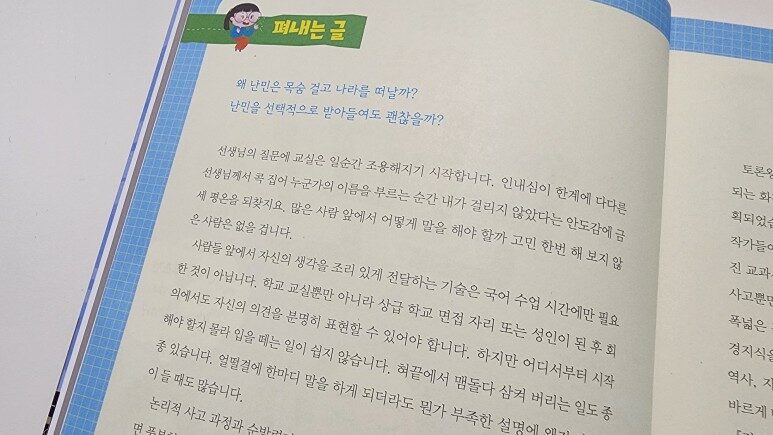 펴내는 글
왜 난민은 목숨 걸고 나라를 떠날까?
난민을 선택적으로 받아들여도 괜찮을까?
선생님의 질문에 교실은 일순간 조용해지기 시작합니다. 인내심이 한계에 다다른
선생님께서 콕 집어 누군가의 이름을 부르는 순간 내가 걸리지 않았다는 안도감에 금
세 평온을 되찾지요. 많은 사람 앞에서 어떻게 말을 해야 할까 고민 한번 해 보지 않
은 사람은 없을 겁니다.
사람들 앞에서 자신의 생각을 조리 있게 전달하는 기술은 국어 수업 시간에만 필요
한 것이 아닙니다. 학교 교실뿐만 아니라 상급 학교 면접 자리 또는 성인이 된 후 회
의에서도 자신의 의견을 분명히 표현할 수 있어야 합니다. 하지만 어디서부터 시작
해야 할지 몰라 입을 떼는 일이 쉽지 않습니다. 혀끝에서 맴돌다 삼켜 버리는 일도 종
종 있습니다. 얼떨결에 한마디 말을 하게 되더라도 뭔가 부족한 설명에 왠지
이 들 때도 많습니다.
논리적 사고 과정과 순발력
토론왕
되는 화
획되었습
작가들이
진 교과
사고뿐만
폭넓은
경지식을
역사, 지
바르게